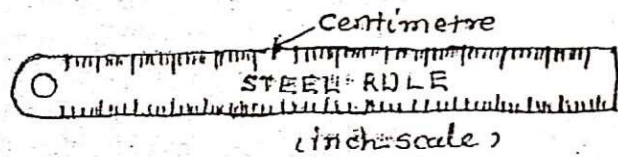 Centimetre
STEEL RULE
(inch-scale)